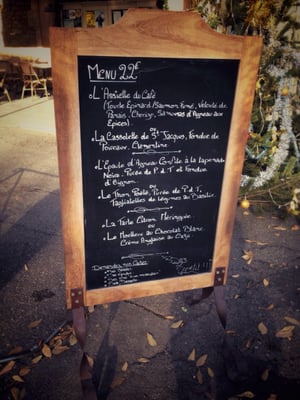 MENU 22€
L'Assiette du Café
(Tourte Epinard/Saumon Fumé, Velouté de
Panais, Chorizo, d'Agneau aux
Epices)
ou
La Cassolette de St Jacques, Fondue de
Poireaux, Clémentine
L'Epaule d'Agneau Confite à la Tapenade
Noire, Purée de P.d.T et Fondue
d'Oignon
ou
Le Thon Poêlé, Purée de P.d.T,
Tagliatelles de Légumes au Basilic
La Tarte Citron Meringuée
ou
Le Moelleux au Chocolat Blanc,
Crème Anglaise au Café
Demandez nos Cafés